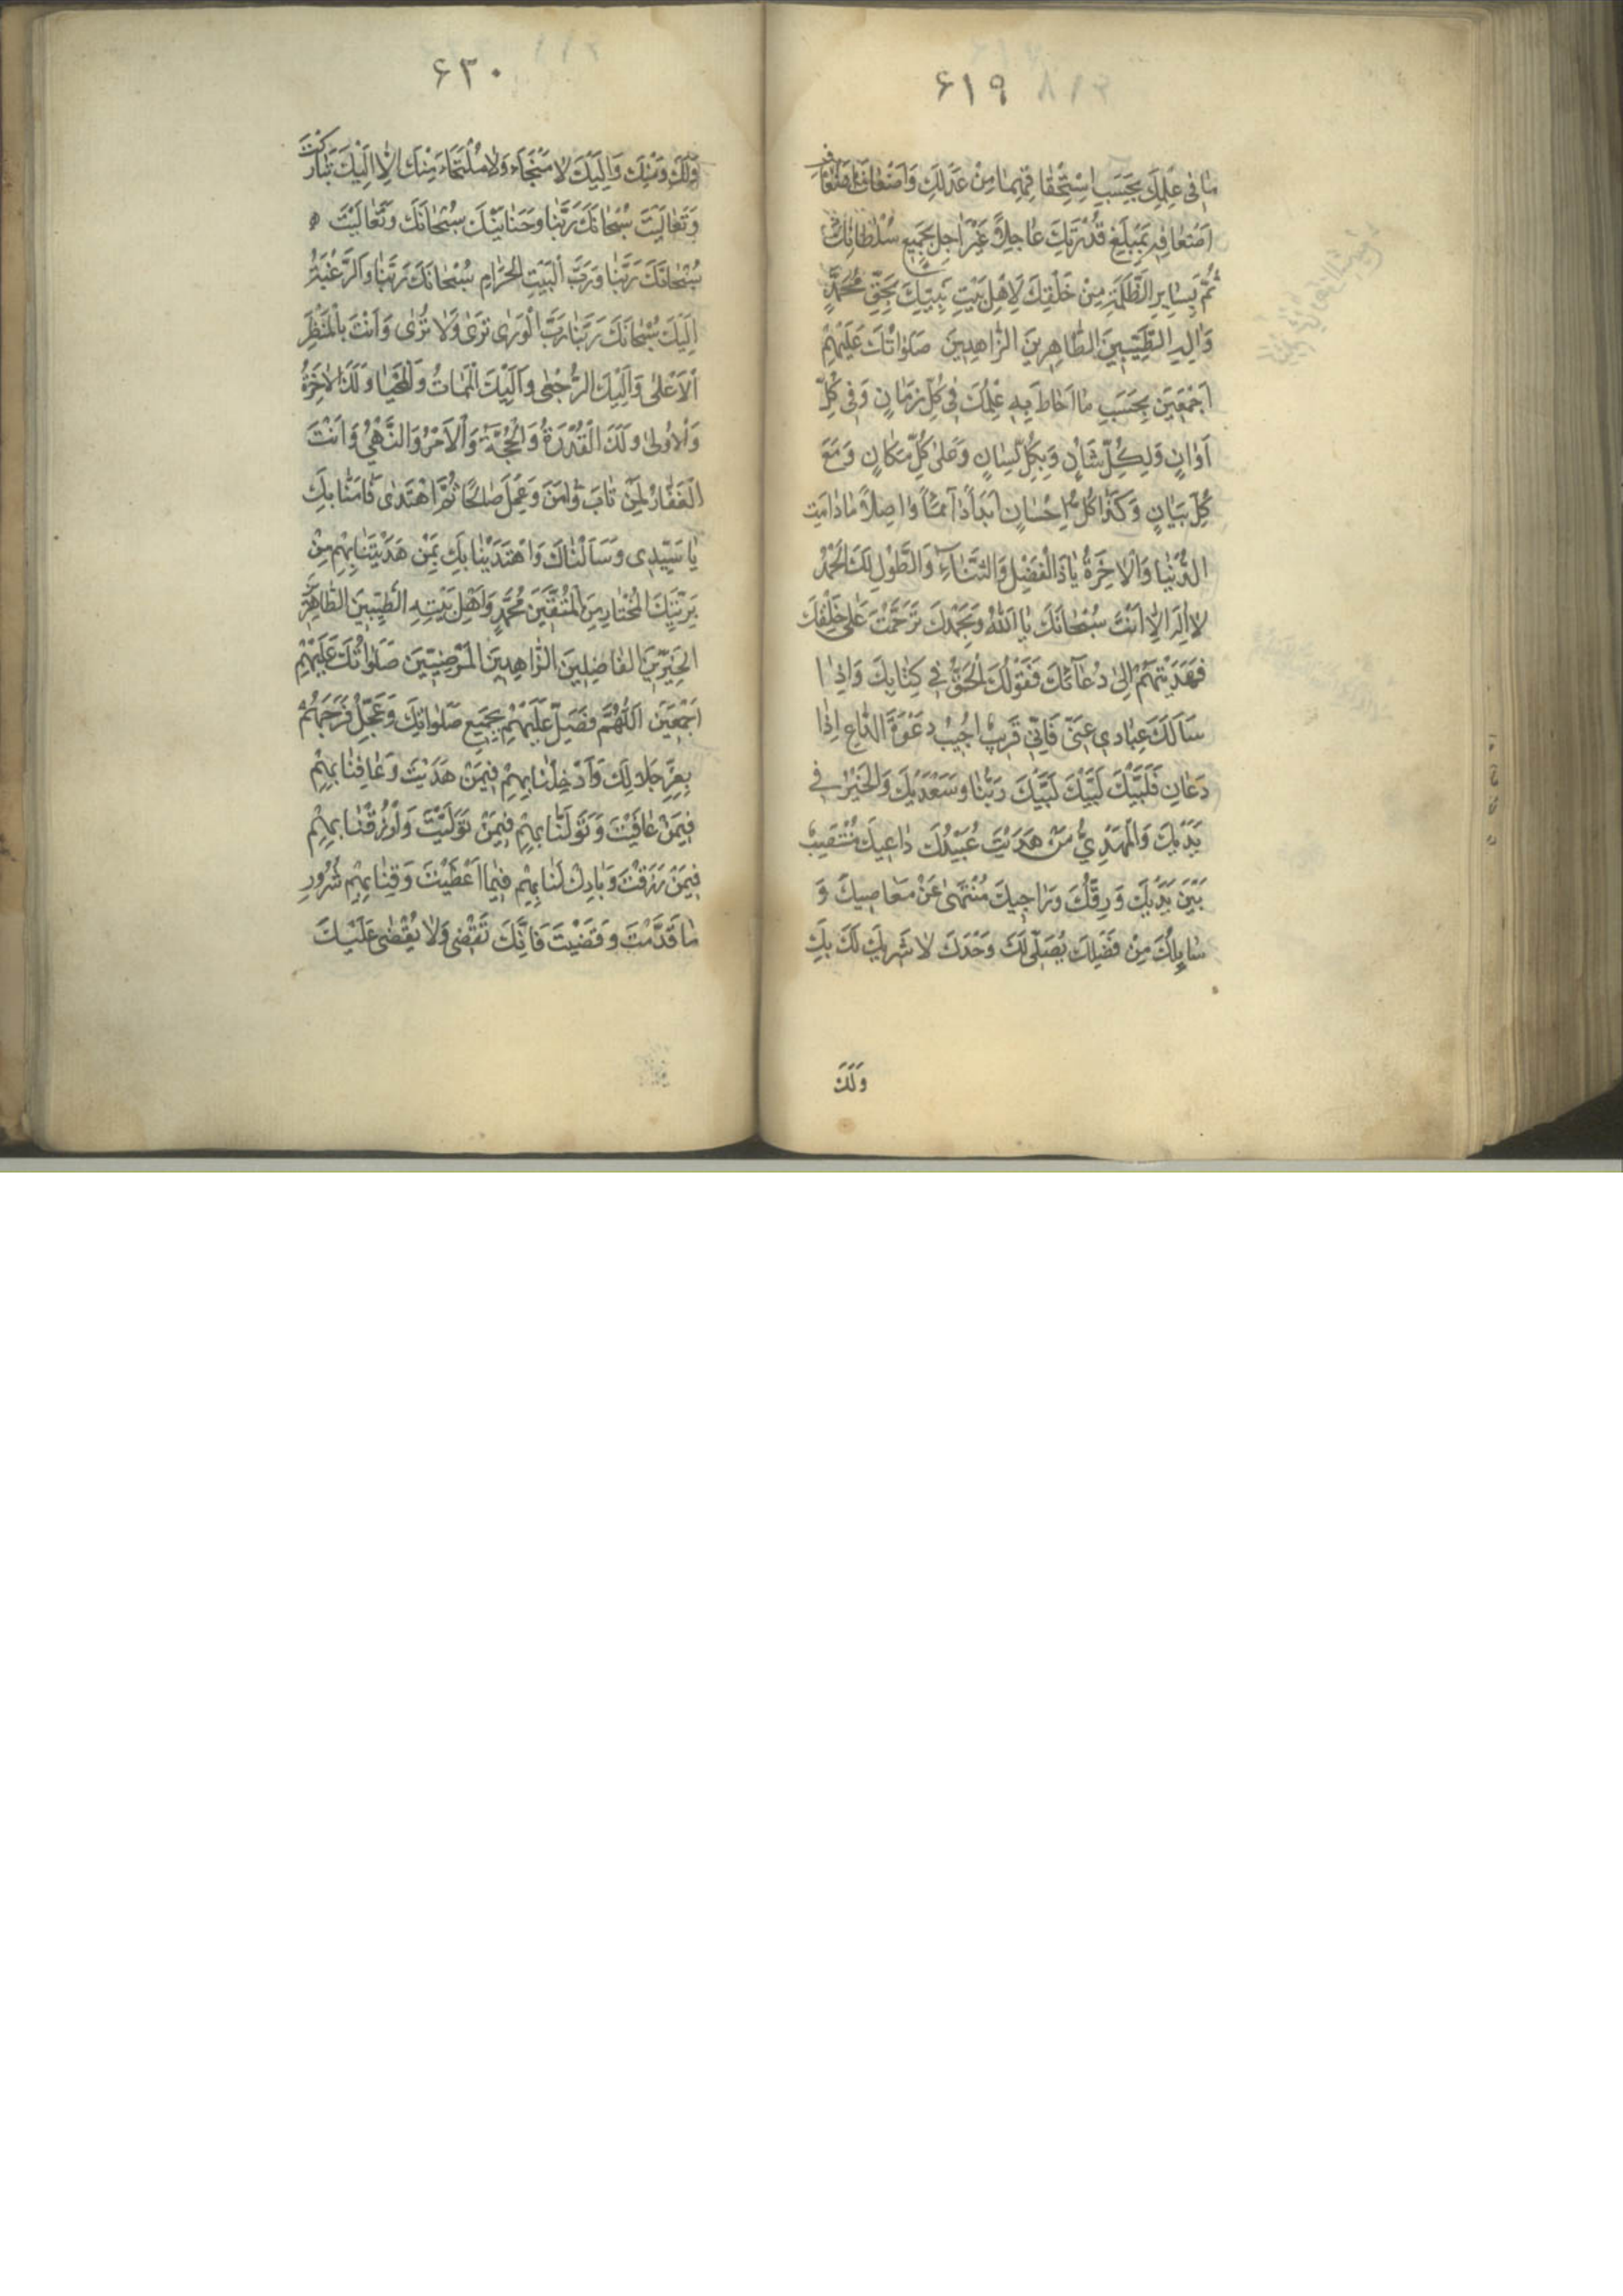 ۶۱۹
مَا فِي عِلْمِكَ بِحَسَبِ اسْتِحْقَاقِهِمَا مِنْ عَدْلِكَ وَاَضْعَافِ اَضْعَافِ
اَضْعَافِهِ بِمَبْلَغِ قُدْرَتِكَ عَاجِلًا غَيْرَ اٰجِلٍ بِجَمِيعِ سُلْطَانِكَ
ثُمَّ بِسَايِرِ الظَّلَمَةِ مِنْ خَلْقِكَ لِاَهْلِ بَيْتِ نَبِيِّكَ بِحَقِّ مُحَمَّدٍ
وَاٰلِهِ الطَّيِّبِينَ الطَّاهِرِينَ الزَّاهِدِينَ صَلَوَاتُكَ عَلَيْهِمْ
اَجْمَعِينَ بِحَسَبِ مَا اَحَاطَ بِهِ عِلْمُكَ فِي كُلِّ زَمَانٍ وَفِي كُلِّ
اَوَانٍ وَلِكُلِّ شَأْنٍ وَبِكُلِّ لِسَانٍ وَعَلَى كُلِّ مَكَانٍ وَمَعَ
كُلِّ بَيَانٍ وَكَذَا كُلِّ اِحْسَانٍ اَبَدًا دَآئِمًا وَاصِلًا مَا دَامَتِ
الدُّنْيَا وَالْاٰخِرَةُ يَا ذَا الْفَضْلِ وَالثَّنَآءِ وَالطَّوْلِ لَكَ الْحَمْدُ
لَا اِلٰهَ اِلَّا اَنْتَ سُبْحَانَكَ يَا اَللّٰهُ وَبِحَمْدِكَ تَرَحَّمْتَ عَلَى خَلْقِكَ
فَهَدَيْتَهُمْ اِلَى دُعَآئِكَ فَقَوْلُكَ الْحَقُّ فِي كِتَابِكَ وَاِذَا
سَاَلَكَ عِبَادِي عَنِّي فَاِنِّي قَرِيبٌ اُجِيبُ دَعْوَةَ الدَّاعِ اِذَا
دَعَانِ فَلَبَّيْكَ لَبَّيْكَ لَبَّيْكَ رَبَّنَا وَسَعْدَيْكَ وَالْخَيْرُ فِي
يَدَيْكَ وَالْمَهْدِيُّ مَنْ هَدَيْتَ عُبَيْدُكَ دَاعِيكَ مُنْتَصِبٌ
بَيْنَ يَدَيْكَ وَرِقُّكَ وَرَاجِيكَ مُنْتَهًى عَنْ مَعَاصِيكَ وَ
سَايِلُكَ مِنْ فَضْلِكَ يُصَلِّي لَكَ وَحْدَكَ لَا شَرِيكَ لَكَ بِكَ
وَلَكَ
۶۲۰
وَلَكَ وَمِنْكَ وَاِلَيْكَ لَا مَنْجَاءَ وَلَا مُلْتَجَاءَ مِنْكَ اِلَّا اِلَيْكَ تَبَارَكْتَ
وَتَعَالَيْتَ سُبْحَانَكَ رَبَّنَا وَحَنَانَيْكَ سُبْحَانَكَ وَتَعَالَيْتَ
سُبْحَانَكَ رَبَّنَا وَرَبَّ الْبَيْتِ الْحَرَامِ سُبْحَانَكَ رَبَّنَا وَالرَّغْبَةُ
اِلَيْكَ سُبْحَانَكَ رَبَّنَا رَبَّ الْوَرَى تَرَى وَلَا تُرَى وَاَنْتَ بِالْمَنْظَرِ
الْاَعْلَى وَاِلَيْكَ الرُّجْعَى وَاِلَيْكَ الْمَمَاتُ وَالْمَحْيَا وَلَكَ الْاٰخِرَةُ
وَالْاُولَى وَلَكَ الْقُدْرَةُ وَالْحُجَّةُ وَالْاَمْرُ وَالنَّهْيُ وَاَنْتَ
الْغَفَّارُ لِمَنْ تَابَ وَاٰمَنَ وَعَمِلَ صَالِحًا ثُمَّ اهْتَدَى فَاٰمَنَّا بِكَ
يَا سَيِّدِي وَسَاَلْنَاكَ وَاهْتَدَيْنَا بِكَ بِمَنْ هَدَيْتَنَا بِهِمْ مِنْ
بَرِيَّتِكَ الْمُخْتَارِ مِنَ الْمُتَّقِينَ مُحَمَّدٍ وَاَهْلِ بَيْتِهِ الطَّيِّبِينَ الطَّاهِرِينَ
الْخَيِّرِينَ الْفَاضِلِينَ الزَّاهِدِينَ الْمَرْضِيِّينَ صَلَوَاتُكَ عَلَيْهِمْ
اَجْمَعِينَ اَللّٰهُمَّ فَصَلِّ عَلَيْهِمْ بِجَمِيعِ صَلَوَاتِكَ وَعَجِّلْ فَرَجَهُمْ
بِعِزِّ جَلَالِكَ وَاَدْخِلْنَا بِهِمْ فِيمَنْ هَدَيْتَ وَعَافِنَا بِهِمْ
فِيمَنْ عَافَيْتَ وَتَوَلَّنَا بِهِمْ فِيمَنْ تَوَلَّيْتَ وَارْزُقْنَا بِهِمْ
فِيمَنْ رَزَقْتَ وَبَارِكْ لَنَا بِهِمْ فِيمَا اَعْطَيْتَ وَقِنَا بِهِمْ شُرُورَ
مَا قَدَّمْتَ وَقَضَيْتَ فَاِنَّكَ تَقْضِي وَلَا يُقْضَى عَلَيْكَ